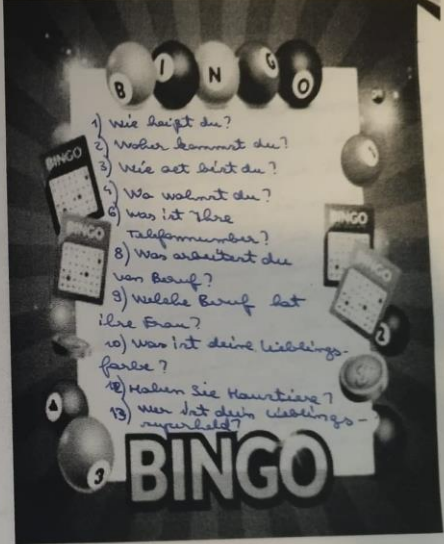 BINGO
1) Wie heißt du?
2) Woher kommst du?
3) Wie alt bist du?
4) Wo wohnst du?
6) Was ist Ihre
Telefonnummer?
8) Was arbeitest du
von Beruf?
9) Welche Beruf hat
ihre Frau?
10) Was ist deine Lieblings-
farbe?
12) Haben Sie Haustiere?
13) Wer ist dein Lieblings-
superheld?
BINGO
BINGO
BINGO
BINGO
2
3
BINGO